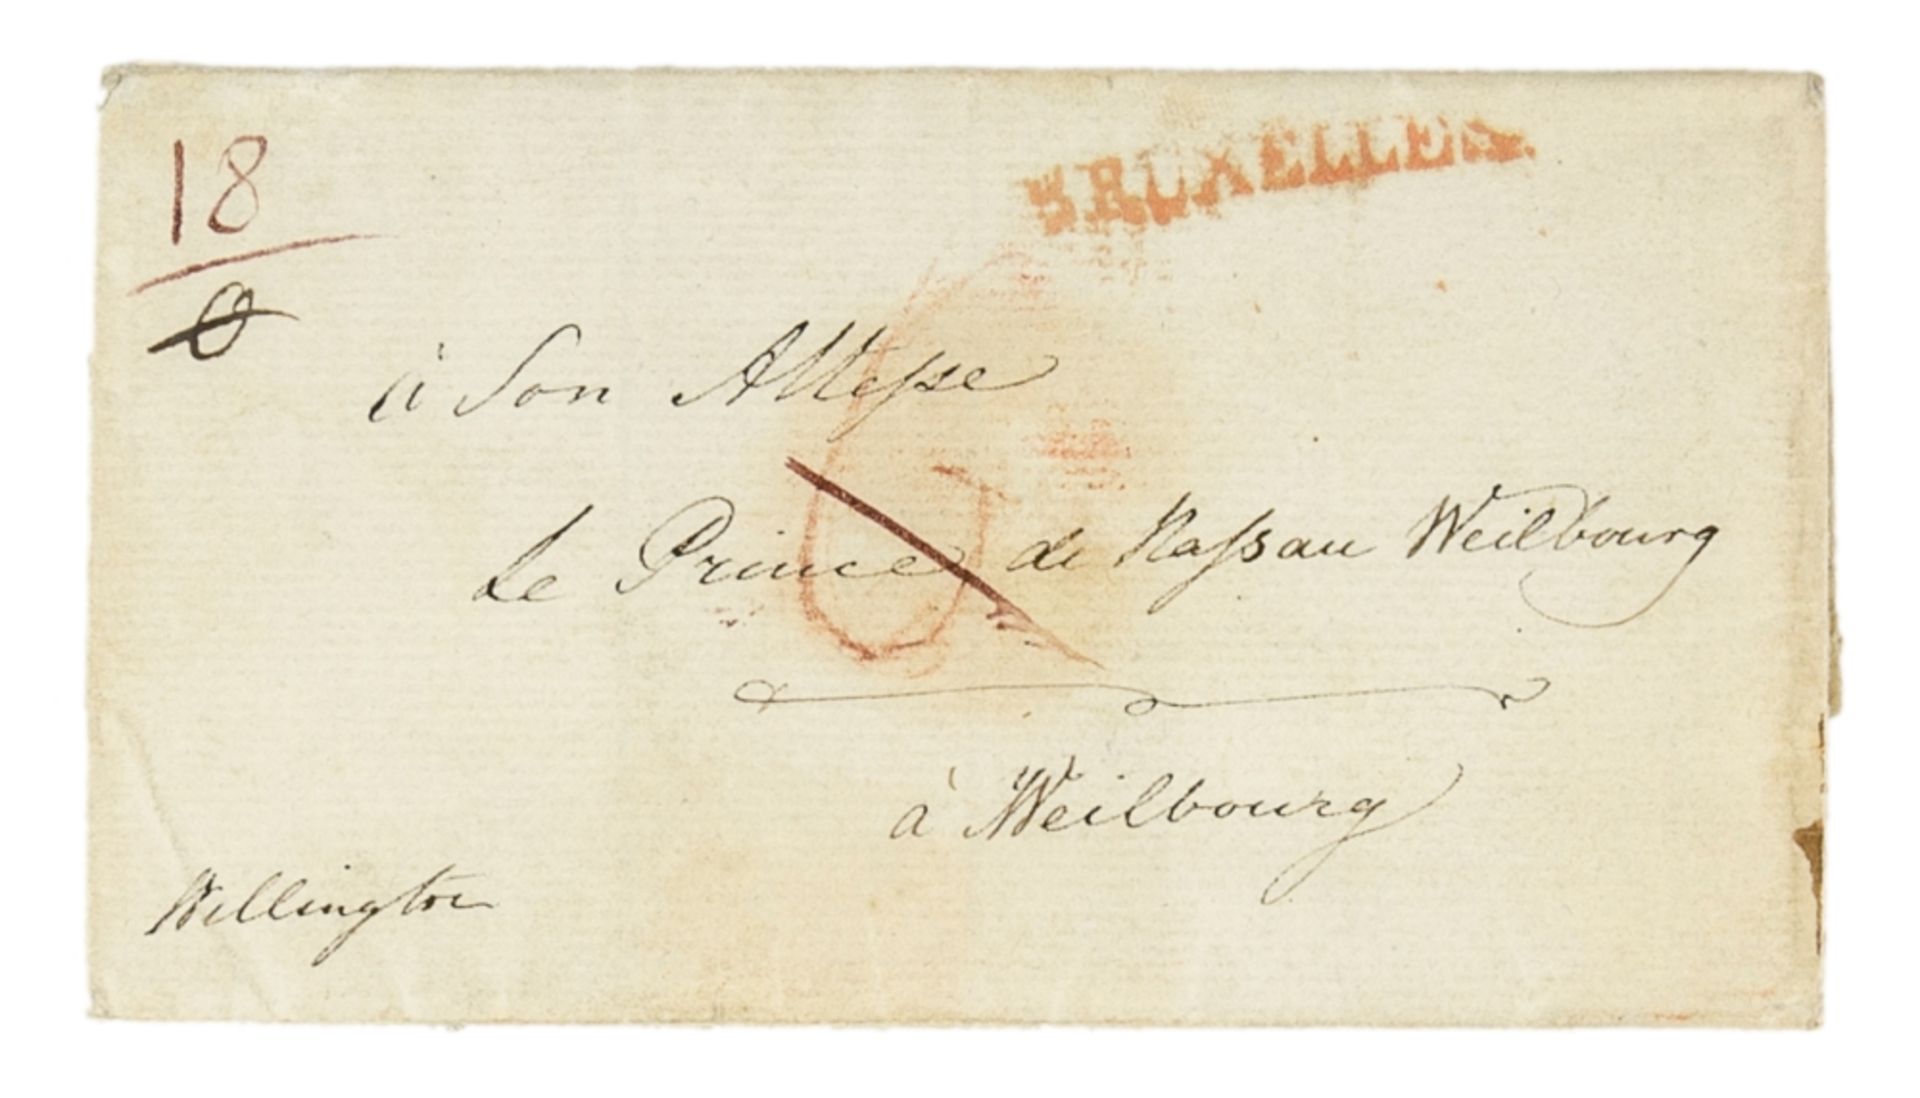 18
BRUXELLES.
à Son Altesse
Le Prince de Nassau Weilbourg
à Weilbourg
Wellington